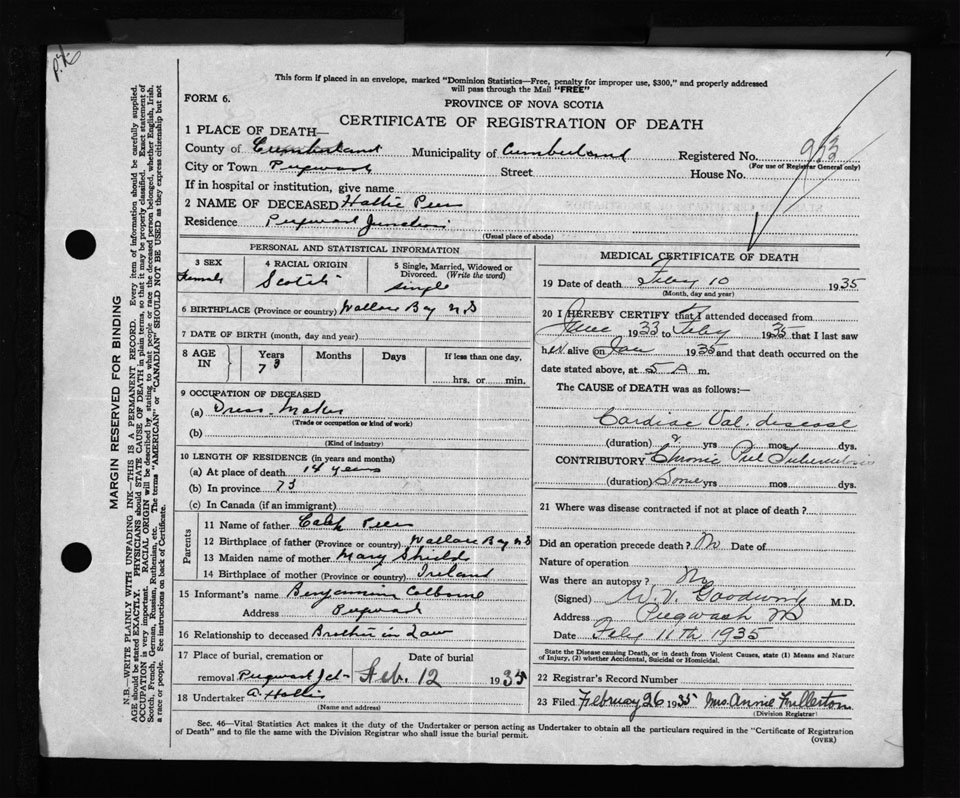 This form if placed in an envelope, marked "Dominion Statistics—Free, penalty for improper use, $300," and properly addressed
will pass through the Mail "FREE"
FORM 6.
PROVINCE OF NOVA SCOTIA
CERTIFICATE OF REGISTRATION OF DEATH
1 PLACE OF DEATH—
County of Cumberland Municipality of Cumberland Registered No. 913
(For use of Registrar General only)
City or Town Pugwash Street House No.
If in hospital or institution, give name
2 NAME OF DECEASED Hattie Peers
Residence Pugwash Junction
(Usual place of abode)
PERSONAL AND STATISTICAL INFORMATION
3 SEX 4 RACIAL ORIGIN 5 Single, Married, Widowed or Divorced. (Write the word)
Female Scotch single
6 BIRTHPLACE (Province or country) Wallace Bay N S
7 DATE OF BIRTH (month, day and year)
8 AGE IN Years Months Days If less than one day,
73 hrs. or min.
9 OCCUPATION OF DECEASED
(a) Dress-Maker
(Trade or occupation or kind of work)
(b)
(Kind of industry)
10 LENGTH OF RESIDENCE (in years and months)
(a) At place of death 14 years
(b) In province 73
(c) In Canada (if an immigrant)
Parents
11 Name of father Caleb Peers
12 Birthplace of father (Province or country) Wallace Bay N S
13 Maiden name of mother Mary Shields
14 Birthplace of mother (Province or country) Ireland
15 Informant's name Benjamin Colborne
Address Pugwash
16 Relationship to deceased Brother in Law
17 Place of burial, cremation or removal Pugwash Jct. Date of burial Feb. 12 1935
18 Undertaker A. Hollis
(Name and address)
MEDICAL CERTIFICATE OF DEATH
19 Date of death Feby 10 1935
(Month, day and year)
20 I HEREBY CERTIFY that I attended deceased from
June 1933 to Feby 1935 that I last saw
her alive on Jan 1935 and that death occurred on
date stated above, at 5 A m.
The CAUSE of DEATH was as follows:—
Cardiac Val. disease
(duration) 2 yrs mos. dys.
CONTRIBUTORY Chronic Pul Tuberculosis
(duration) Some yrs mos. dys.
21 Where was disease contracted if not at place of death?
Did an operation precede death? No Date of
Nature of operation
Was there an autopsy? No
(Signed) W. V. Goodwin M.D.
Address Pugwash NS
Date Feby 11th 1935
State the Disease causing Death, or in death from Violent Causes, state (1) Means and Nature
of Injury, (2) whether Accidental, Suicidal or Homicidal.
22 Registrar's Record Number
23 Filed February 26 1935 Mrs. Annie Fullerton
(Division Registrar)
Sec. 46—Vital Statistics Act makes it the duty of the Undertaker or person acting as Undertaker to obtain all the particulars required in the "Certificate of Registration
of Death" and to file the same with the Division Registrar who shall issue the burial permit.
(OVER)
MARGIN RESERVED FOR BINDING
N.B.—WRITE PLAINLY WITH UNFADING INK—THIS IS A PERMANENT RECORD. Every item of information should be carefully supplied.
AGE should be stated EXACTLY. PHYSICIANS should STATE CAUSE OF DEATH in plain terms, so that it may be properly classified. Exact statement of
OCCUPATION is very important. RACIAL ORIGIN will be described by stating to what people or race the deceased person belonged, whether English, Irish,
Scotch, French, German, Russian, Ruthenian, etc. The terms "AMERICAN" or "CANADIAN" SHOULD NOT BE USED as they express citizenship but not
a race or people. See instructions on back of Certificate.